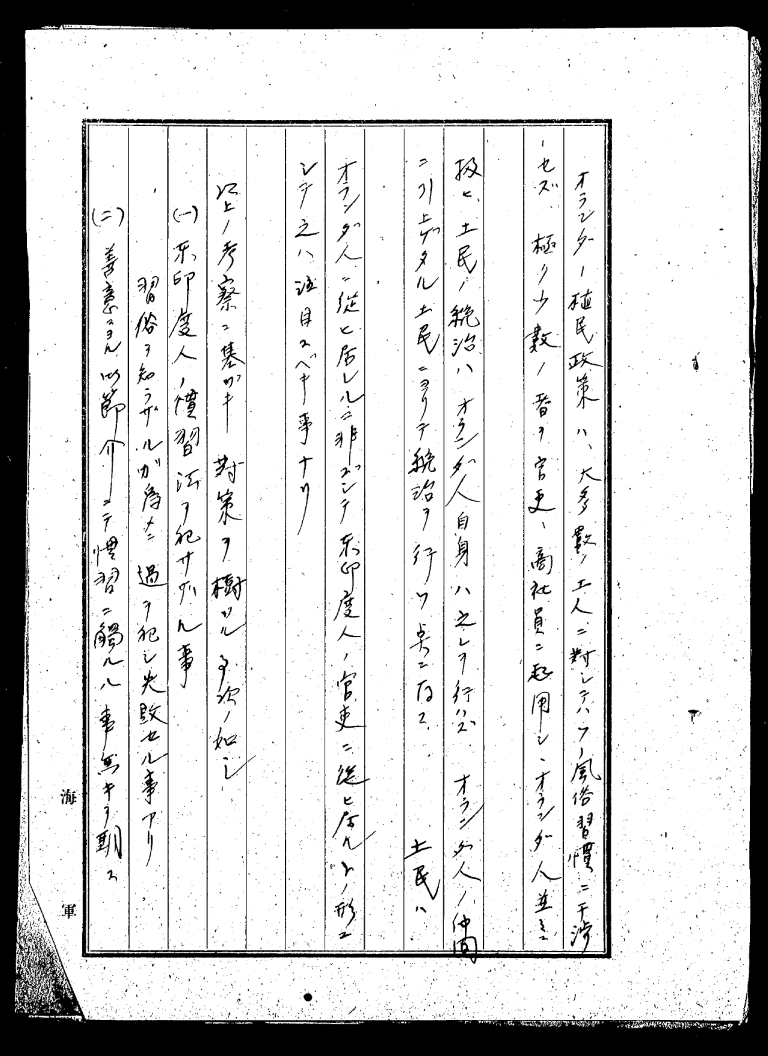 オランダノ植民政策ハ、大多數ノ土人ニ對シテハソノ風俗習慣ニ干渉
セズ、極ク少數ノ者ヲ官吏、商社員ニ起用シ、オランダ人並ニ
扱ヒ、土民ノ統治ハオランダ人自身ハ之レヲ行ハズ オランダ人ノ仲間
ニ引上ゲタル土民ニヨリテ統治ヲ行フ点ニ存ス 土民ハ
オランダ人ニ従ヒ居レルニ非ズシテ東印度人ノ官吏ニ従ヒ居ル ノ形ニ
シテ之ハ注目スベキ事ナリ
以上ノ考察ニ基ヅキ 対策ヲ樹ツル 次ノ如シ
(一) 東印度人ノ慣習法ヲ犯サザル事
習俗ヲ知ラザルガ為メニ過ヲ犯シ失敗セル事アリ
(二) 善意ニヨル 節介ニテ慣習ニ觸ルル事無キヲ期ス
海軍